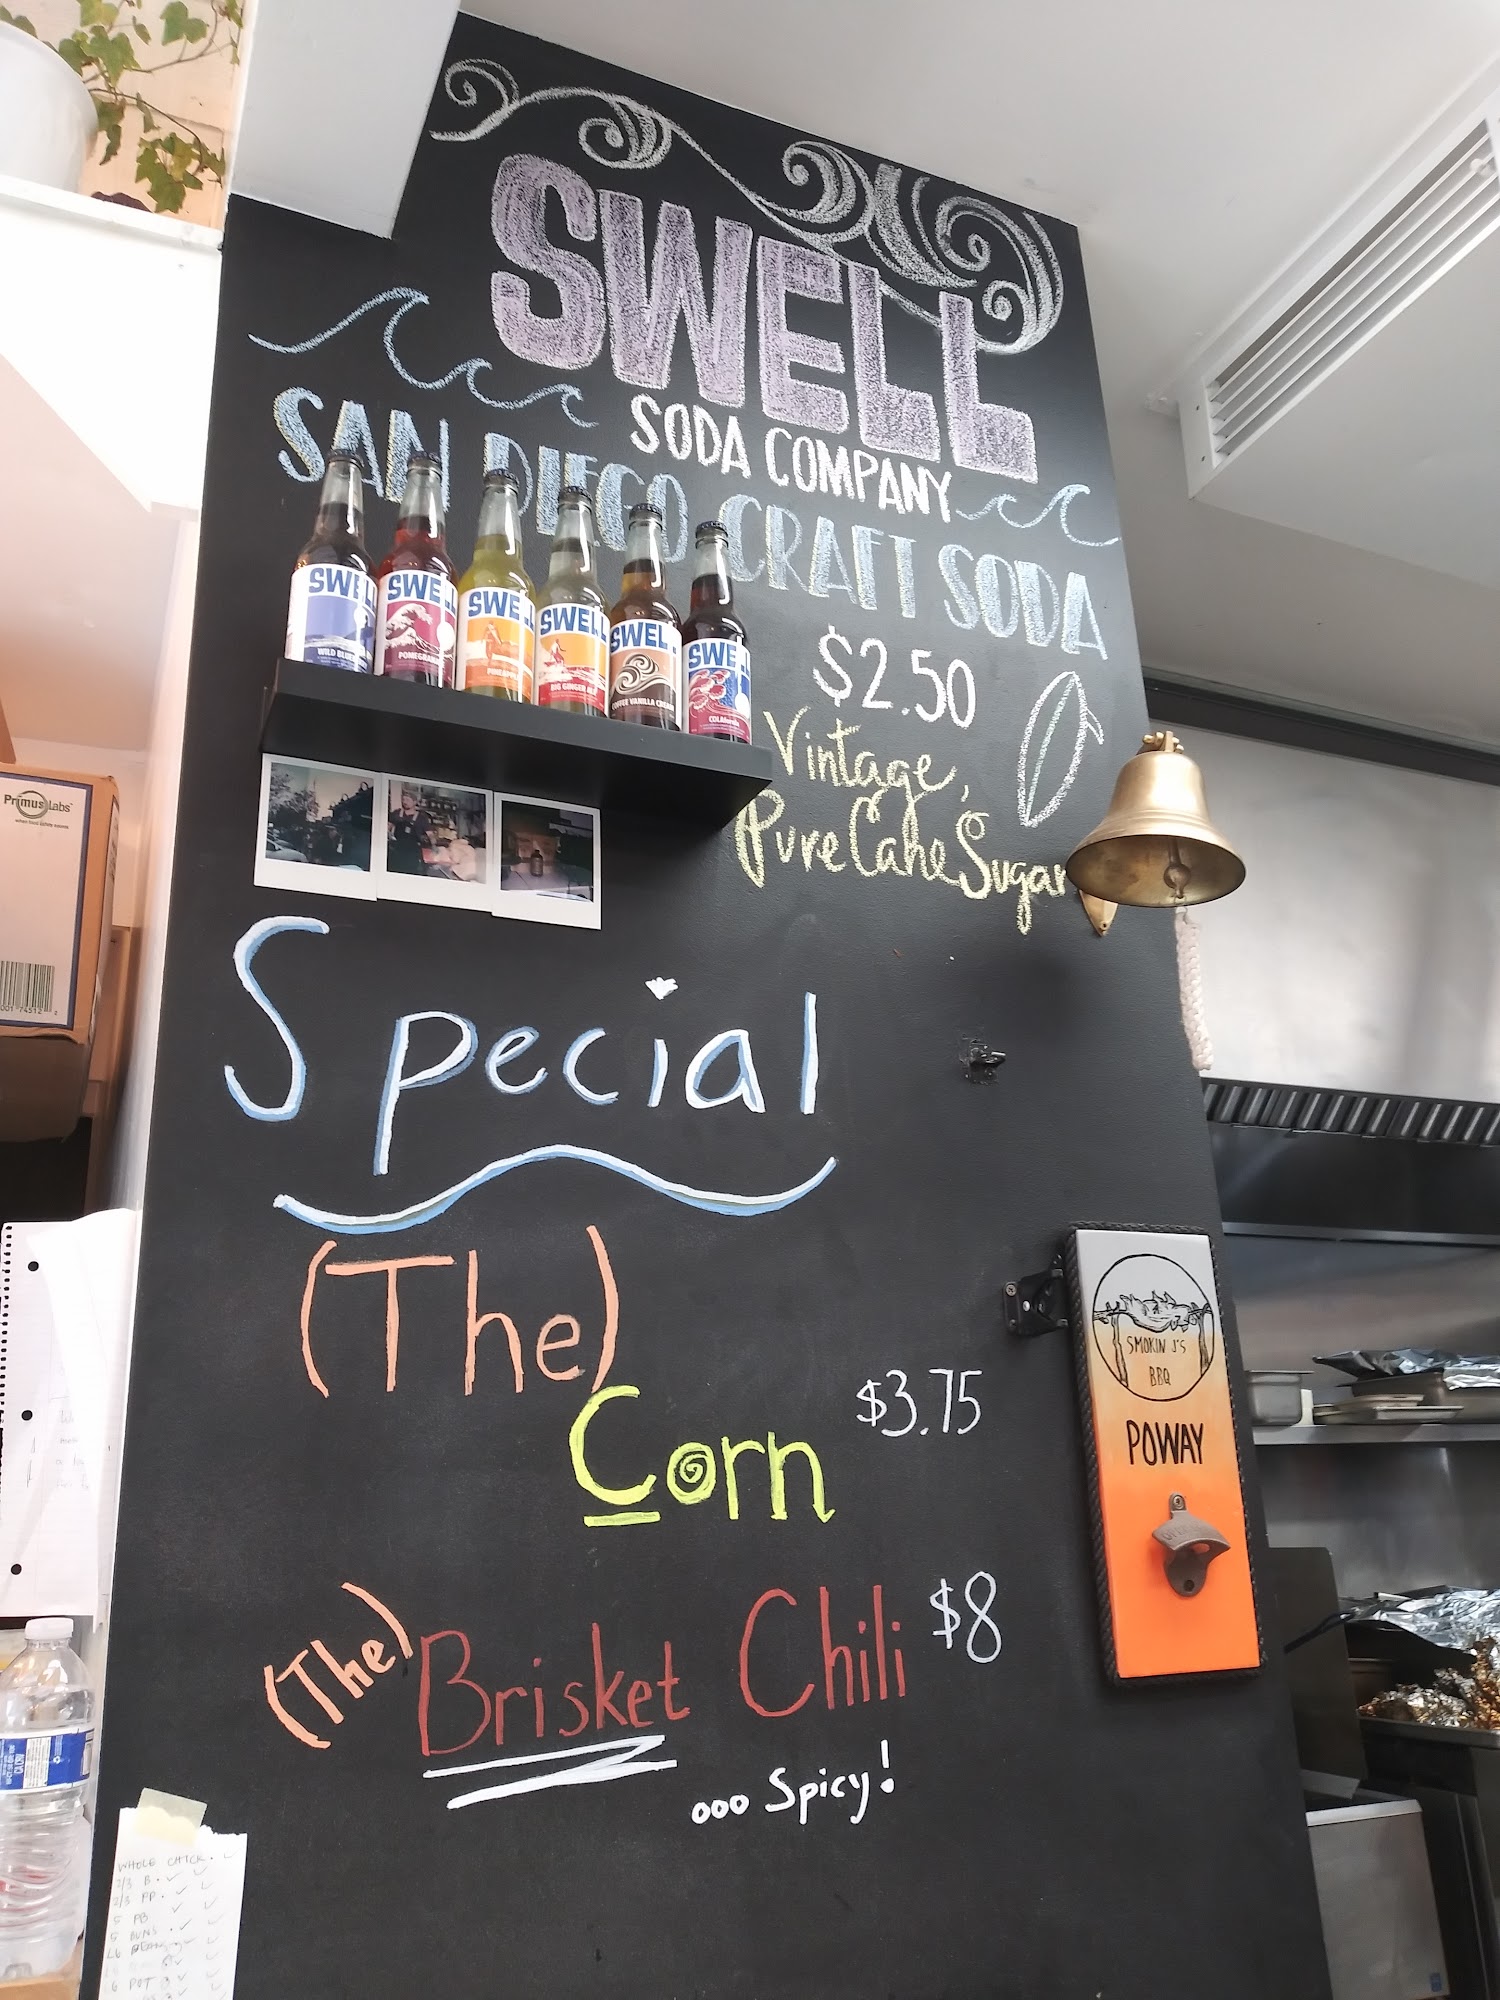 SWELL
SODA COMPANY
SAN DIEGO CRAFT SODA
$2.50
Vintage,
Pure Cane Sugar
SWELL
WILD BLUE
SWELL
POMEGRAN
SWELL
PINEAPPLE
SWELL
BIG GINGER ALE
SWELL
COFFEE VANILLA CREAM
SWELL
COLAfornia
PrimusLabs
Special
(The)
Corn $3.75
(The) Brisket Chili $8
ooo Spicy!
SMOKIN J'S
BBQ
POWAY
WHOLE CHICK.
2/3 B.
2/3 PP.
5 PB
5 BUNS
6 POT